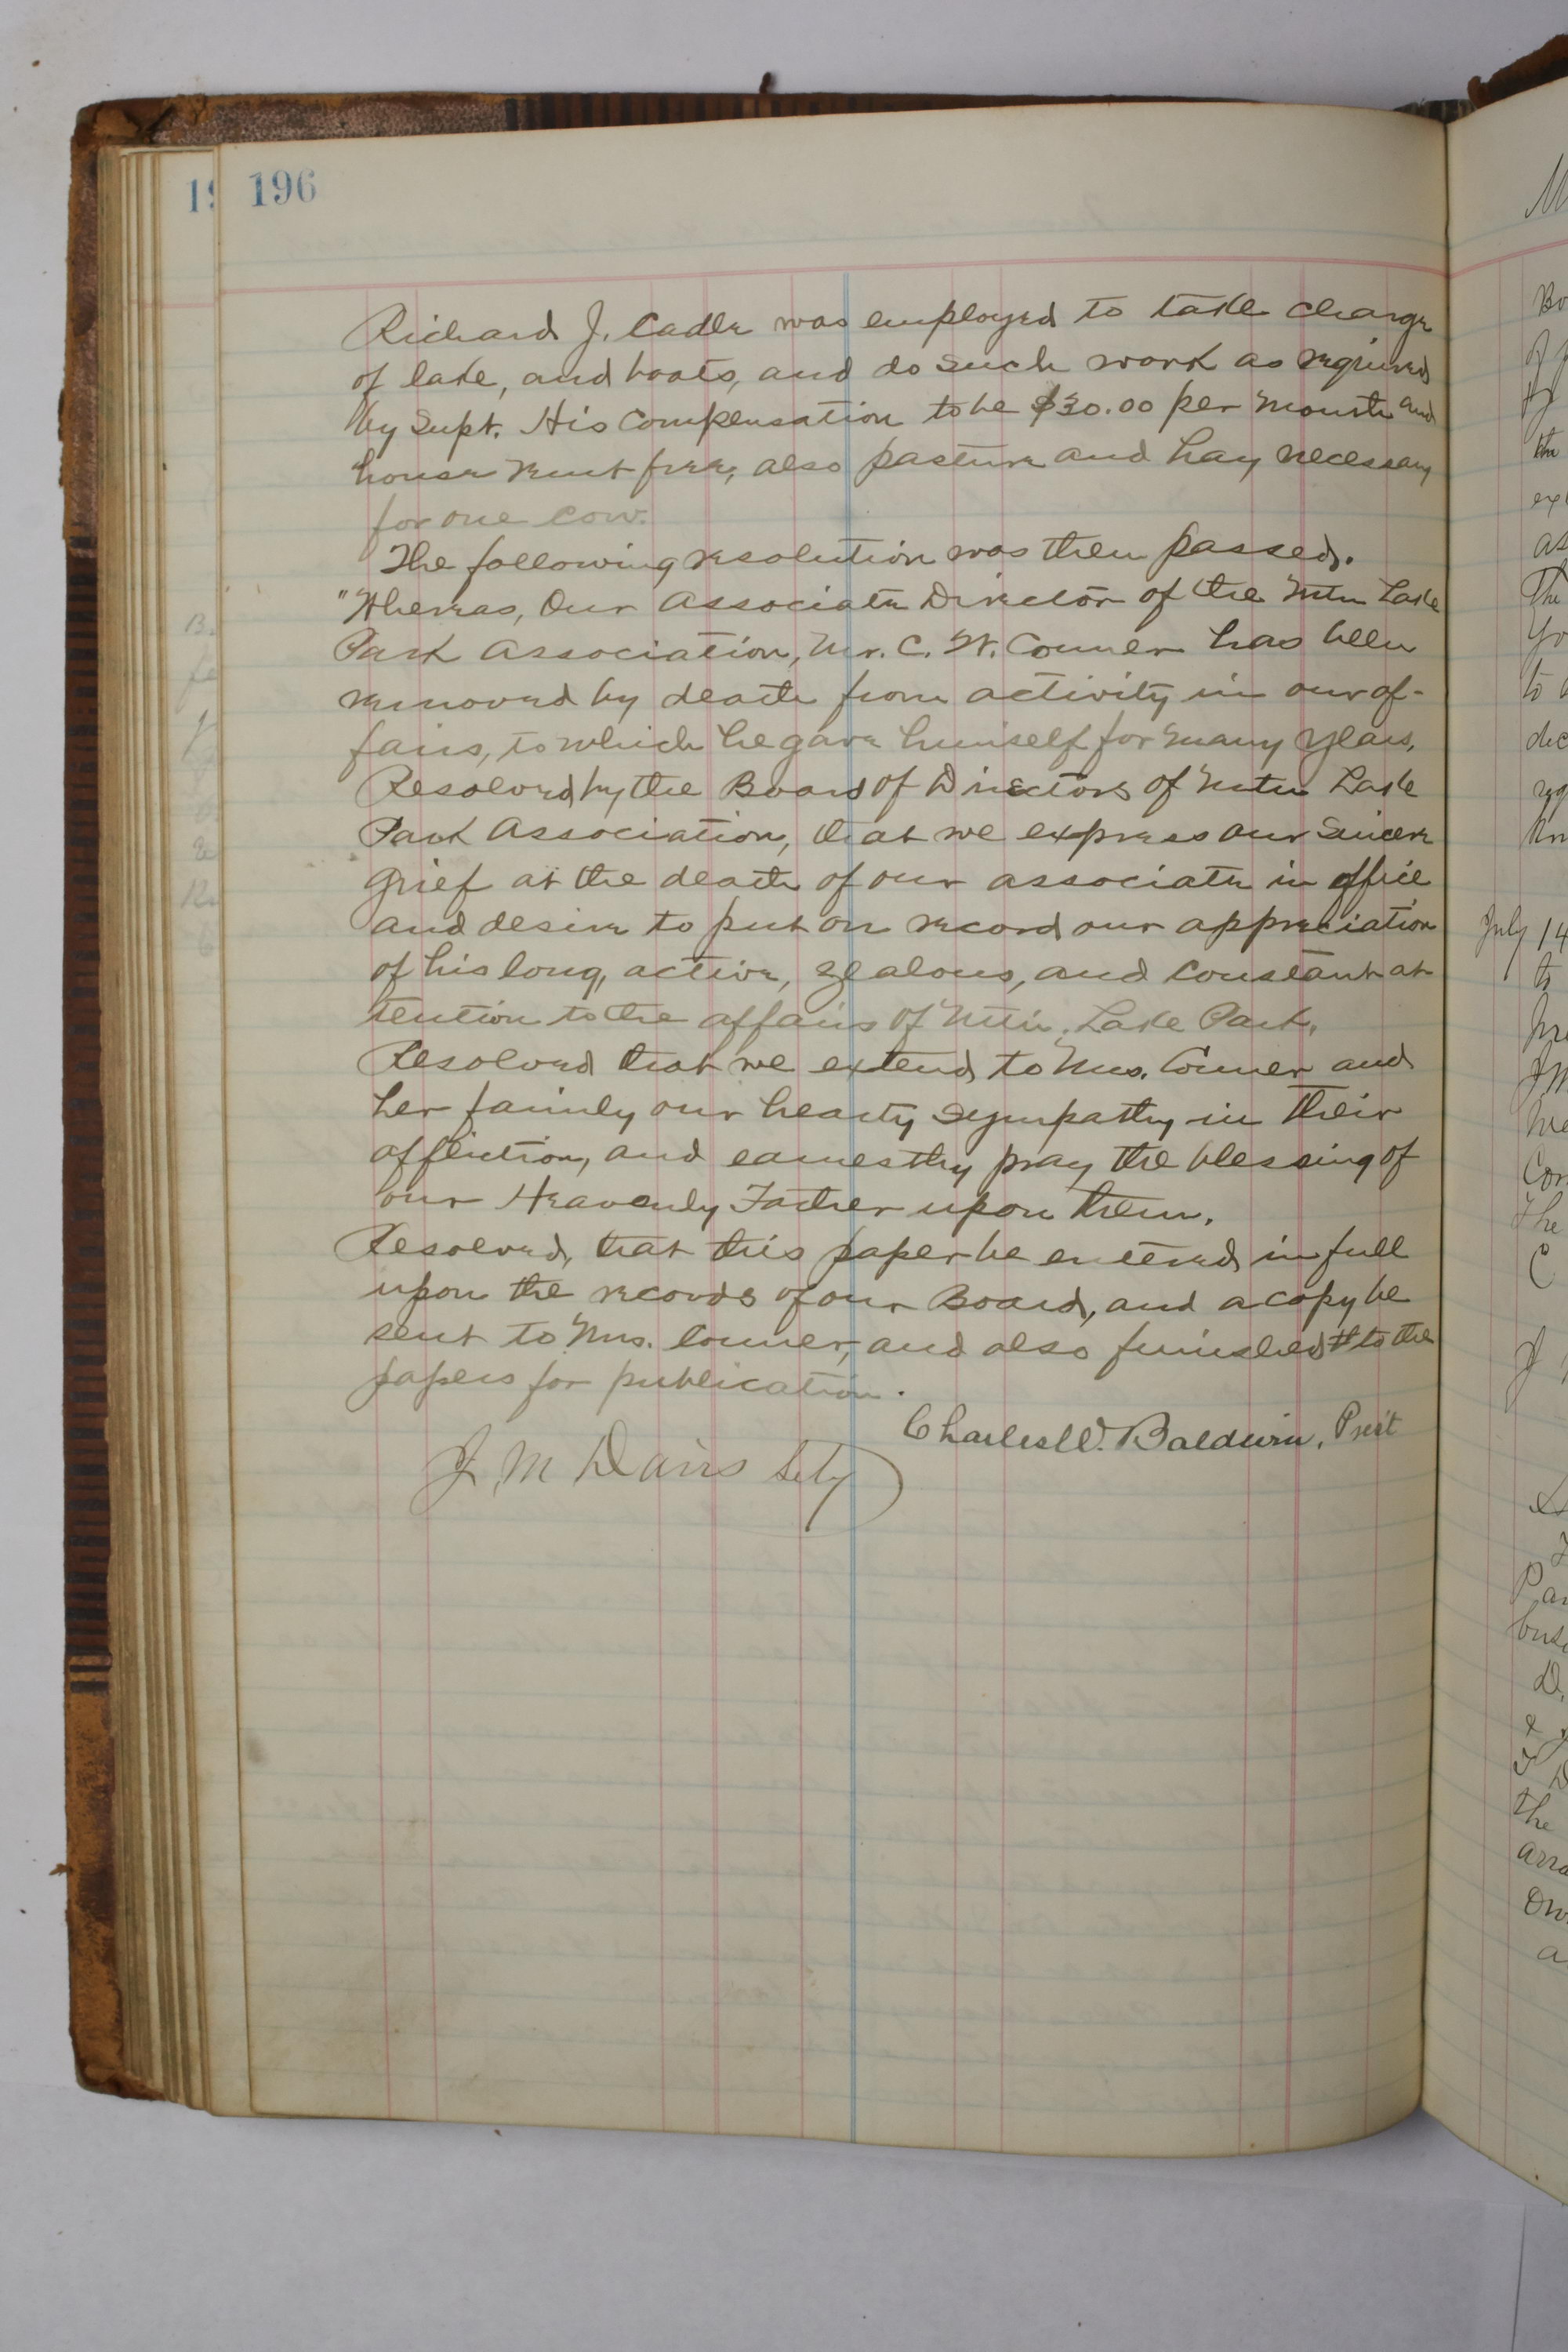 196
Richard J. Cadle was employed to take charge
of lake, and boats, and do such work as required
by Supt. His Compensation to be $30.00 per Month and
house rent free, also pasture and hay necessary
for one cow.
The following resolution was then passed.
"Whereas, Our Associate Director of the Mtn Lake
Park Association, Mr. C. W. Conner has been
removed by death from activity in our af-
fairs, to which he gave himself for many years,
Resolved by the Board of Directors of Mtn Lake
Park Association, that we express our Sincere
grief at the death of our associate in office
and desire to put on record our appreciation
of his long, active, zealous, and constant at
tention to the affairs of Mtn. Lake Park.
Resolved that we extend to Mrs. Conner and
her family our hearty Sympathy in their
affliction, and earnestly pray the blessing of
our Heavenly Father upon them.
Resolved, that this paper be entered in full
upon the records of our Board, and a copy be
sent to Mrs. Conner, and also furnished to the
papers for publication.
Charles W. Baldwin, Prest
J. M Davis Secty
July 14